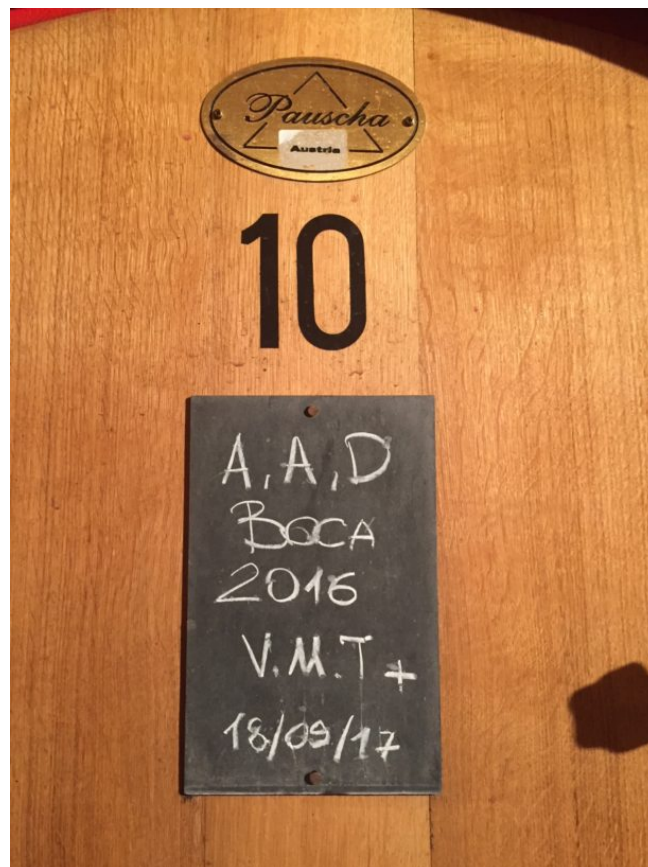 Pauscha
Austria
10
A, A, D
BOCA
2016
V.M.T +
18/09/17